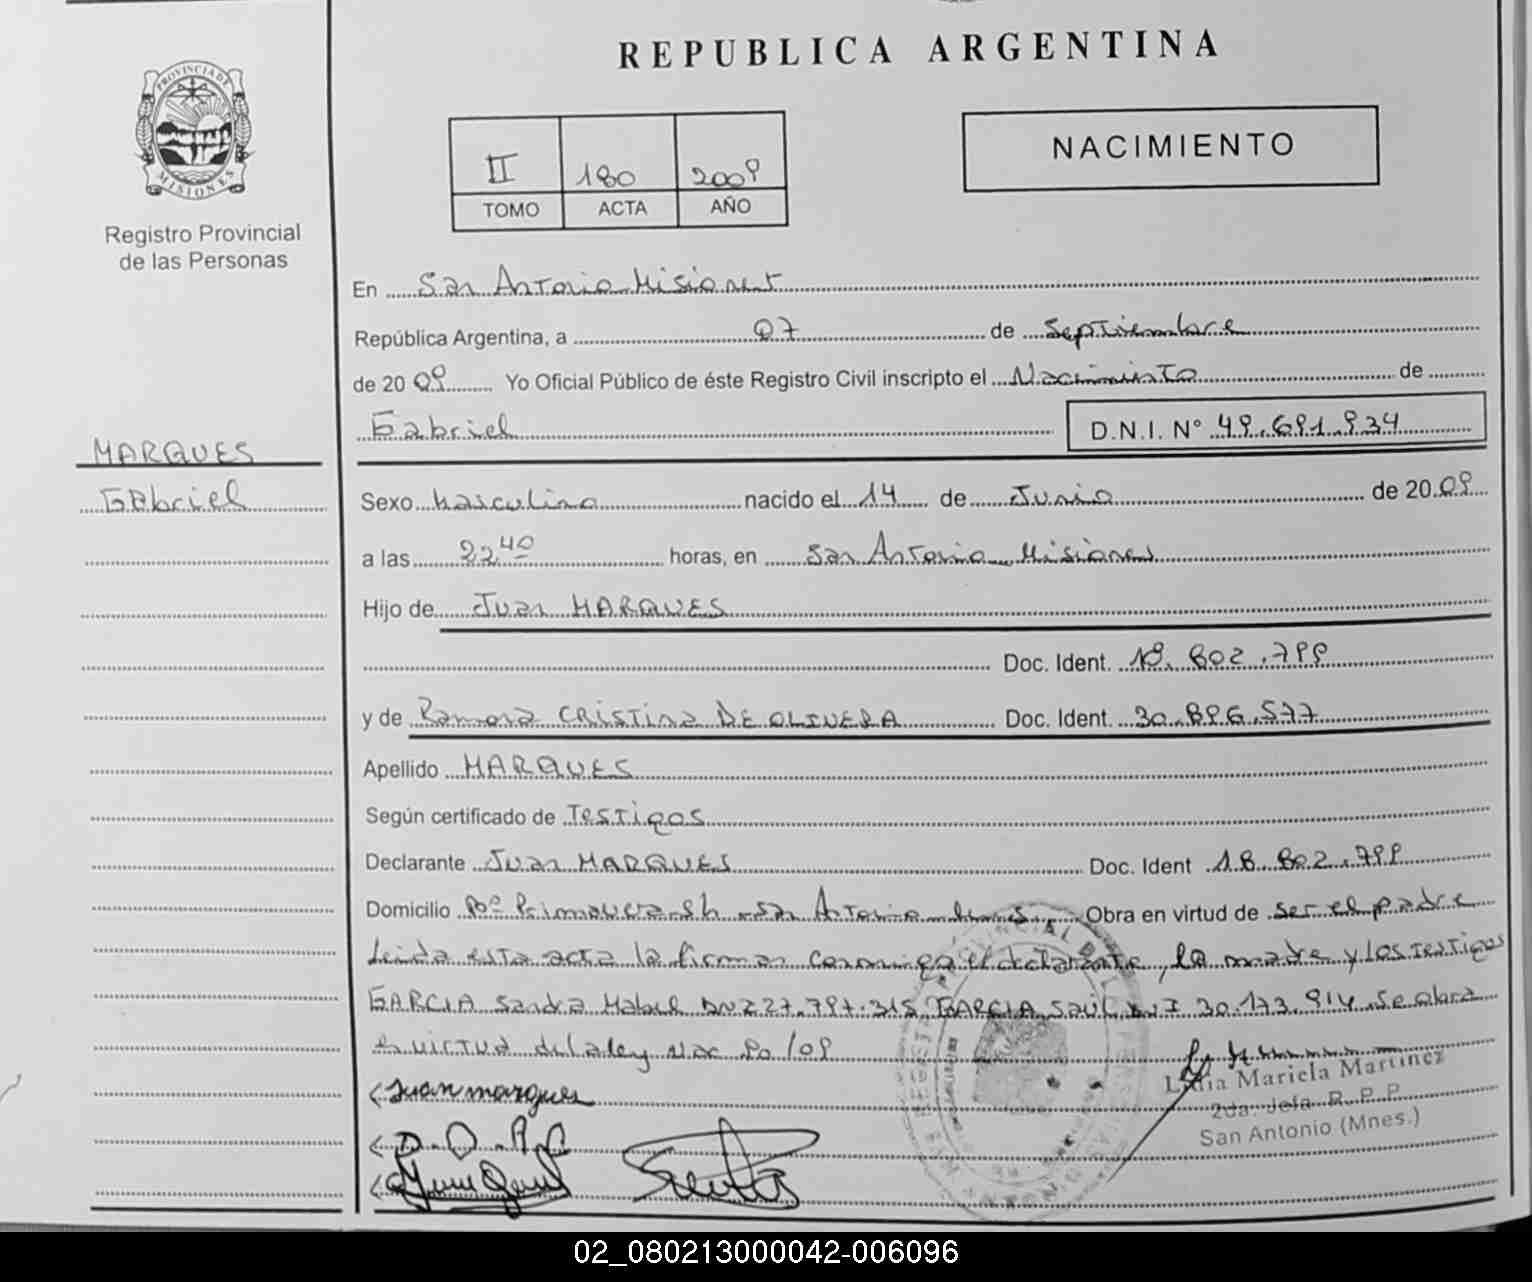 REPUBLICA ARGENTINA
PROVINCIA DE MISIONES
Registro Provincial
de las Personas
II 180 2009
TOMO ACTA AÑO
NACIMIENTO
En San Antonio Misiones
República Argentina, a 07 de Septiembre
de 20 09 Yo Oficial Público de éste Registro Civil inscripto el Nacimiento de
Gabriel D.N.I. N° 49.691.934
MARQUES
GAbriel
Sexo Masculino nacido el 14 de Junio de 20 09
a las 22 40 horas, en San Antonio Misiones
Hijo de Juan MARQUES
Doc. Ident. 18.802.799
y de Ramona CRISTINA DE OLIVERA Doc. Ident. 30.896.577
Apellido MARQUES
Según certificado de Testigos
Declarante Juan MARQUES Doc. Ident 18.802.799
Domicilio Bº Primavera S/n San Antonio Obra en virtud de ser el padre
Leida esta acta la firman conmigo el declarante, la madre y los testigos
GARCIA Sandra Mabel DNI 27.797.315 GARCIA SAUL DNI 30.173.914. Se obra
en virtud de la ley Nac
Juan marques
Lidia Mariela Martinez
2da. Jefa R. P. P.
San Antonio (Mnes.)
02_080213000042-006096